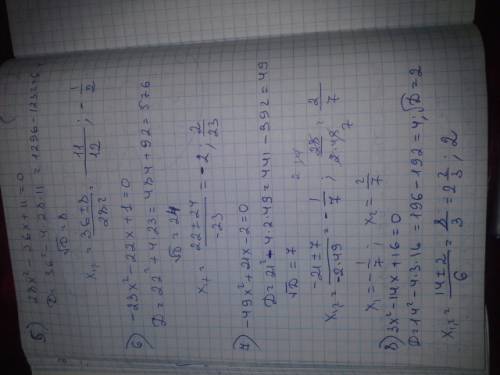 5) 28x² - 36x + 11 = 0
D = 36² - 4·28·11 = 1296 - 1232 =
√D = 8
x₁,₂ = 36±8 / 28² = 11/12 ; -1/2
6) -23x² - 22x + 1 = 0
D = 22² + 4·23 = 484 + 92 = 576
√D = 24
x₁,₂ = 22±24 / -23 = -2; 2/23
7) -49x² + 21x - 2 = 0
D = 21² - 4·2·49 = 441 - 392 = 49
√D = 7
x₁,₂ = -21±7 / -2·49 = -1/7 ; 28/2·49 ; 2/7
x₁ = -1/7 ; x₂ = 2/7
8) 3x² - 14x + 16 = 0
D = 14² - 4·3·16 = 196 - 192 = 4; √D = 2
x₁,₂ = 14±2 / 6 = 8/3 = 2 2/3 ; 2